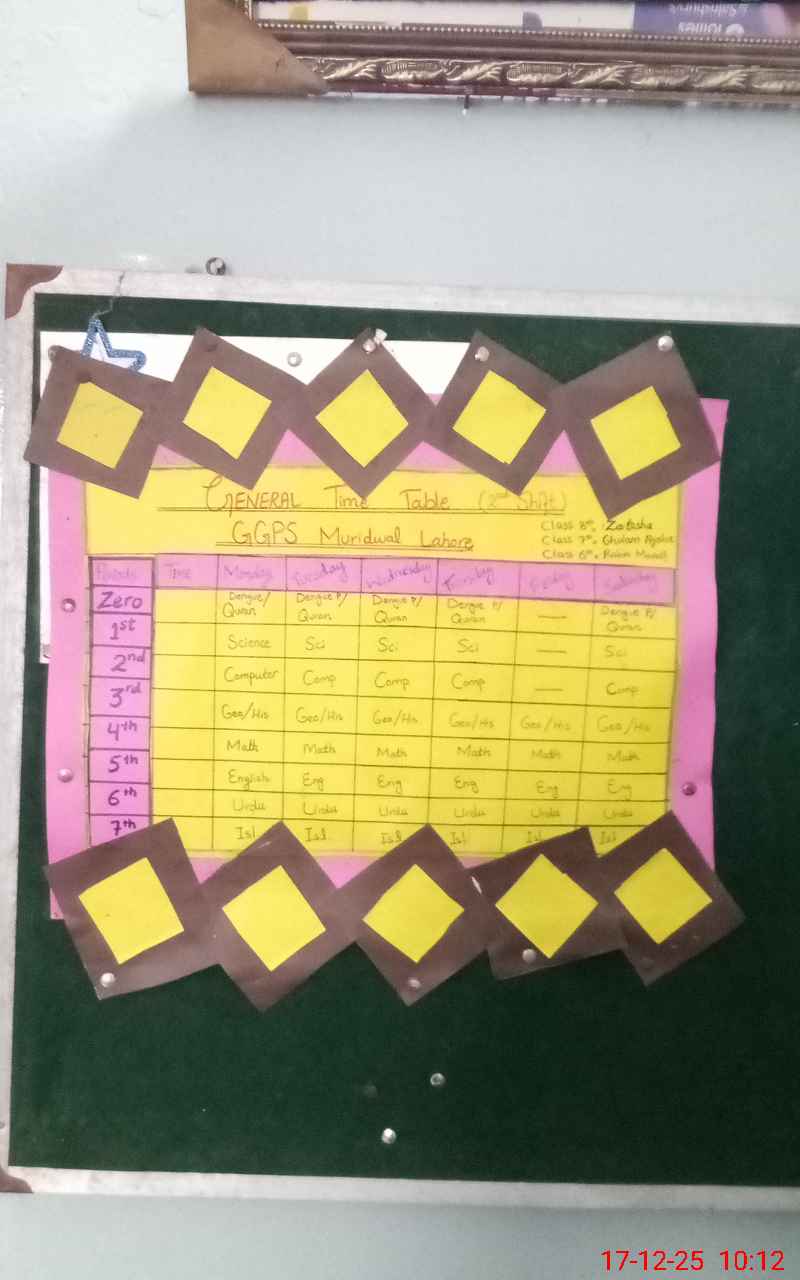 GENERAL Time Table (2nd Shift)
GGPS Muridwal Lahore
Class 8th, Zatasha
Class 7th, Ghulam
Class 6th,
Periods Time Monday Tuesday Wednesday Thursday Friday Saturday
Zero Dengue/Quran Dengue P/Quran Dengue P/Quran Dengue P/Quran — Dengue P/Quran
1st Science Sci Sci Sci — Sci
2nd Computer Comp Comp Comp — Comp
3rd Geo/His Geo/His Geo/His Geo/His Geo/His Geo/His
4th Math Math Math Math Math Math
5th English Eng Eng Eng Eng Eng
6th Urdu Urdu Urdu Urdu Urdu Urdu
7th Isl Isl Isl Isl Isl Isl
17-12-25 10:12